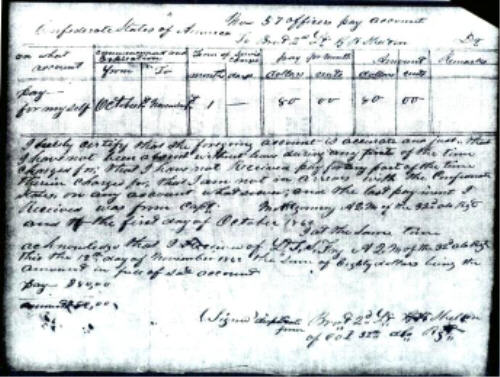 No 37 officers pay account
Confederate States of America
To Brevt 2nd Lt Dr
on what account commencement and Expiration from To Term of Service charged months days pay per month dollars cents Amount dollars cents Remarks
pay for my self October 1st November 1st 1 — 80 00 80 00
I hereby certify that the foregoing account is accurate and just, that
I have not been absent without leave during any part of the time
charged for, that I have not Received pay for any part of the time
therein charged for, that I am not in arrears with the Confederate
States, on any account whatsoever; and the last payment I
Received was from Capt Montgomery A Q M of the 32nd ala Regt
and the first day of October
at the same time
acknowledge that I Received of Lt A Q M of the 32 ala Regt
this the 12th day of November the sum of Eighty dollars being the
amount in full of said account
pay $80,00
amount 80,00
(Signed Brevt 2nd Lt
of Co 32nd ala Regt